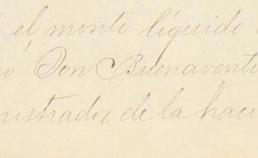 el monto líquido
Don Buenaventu
nistrador de la haci